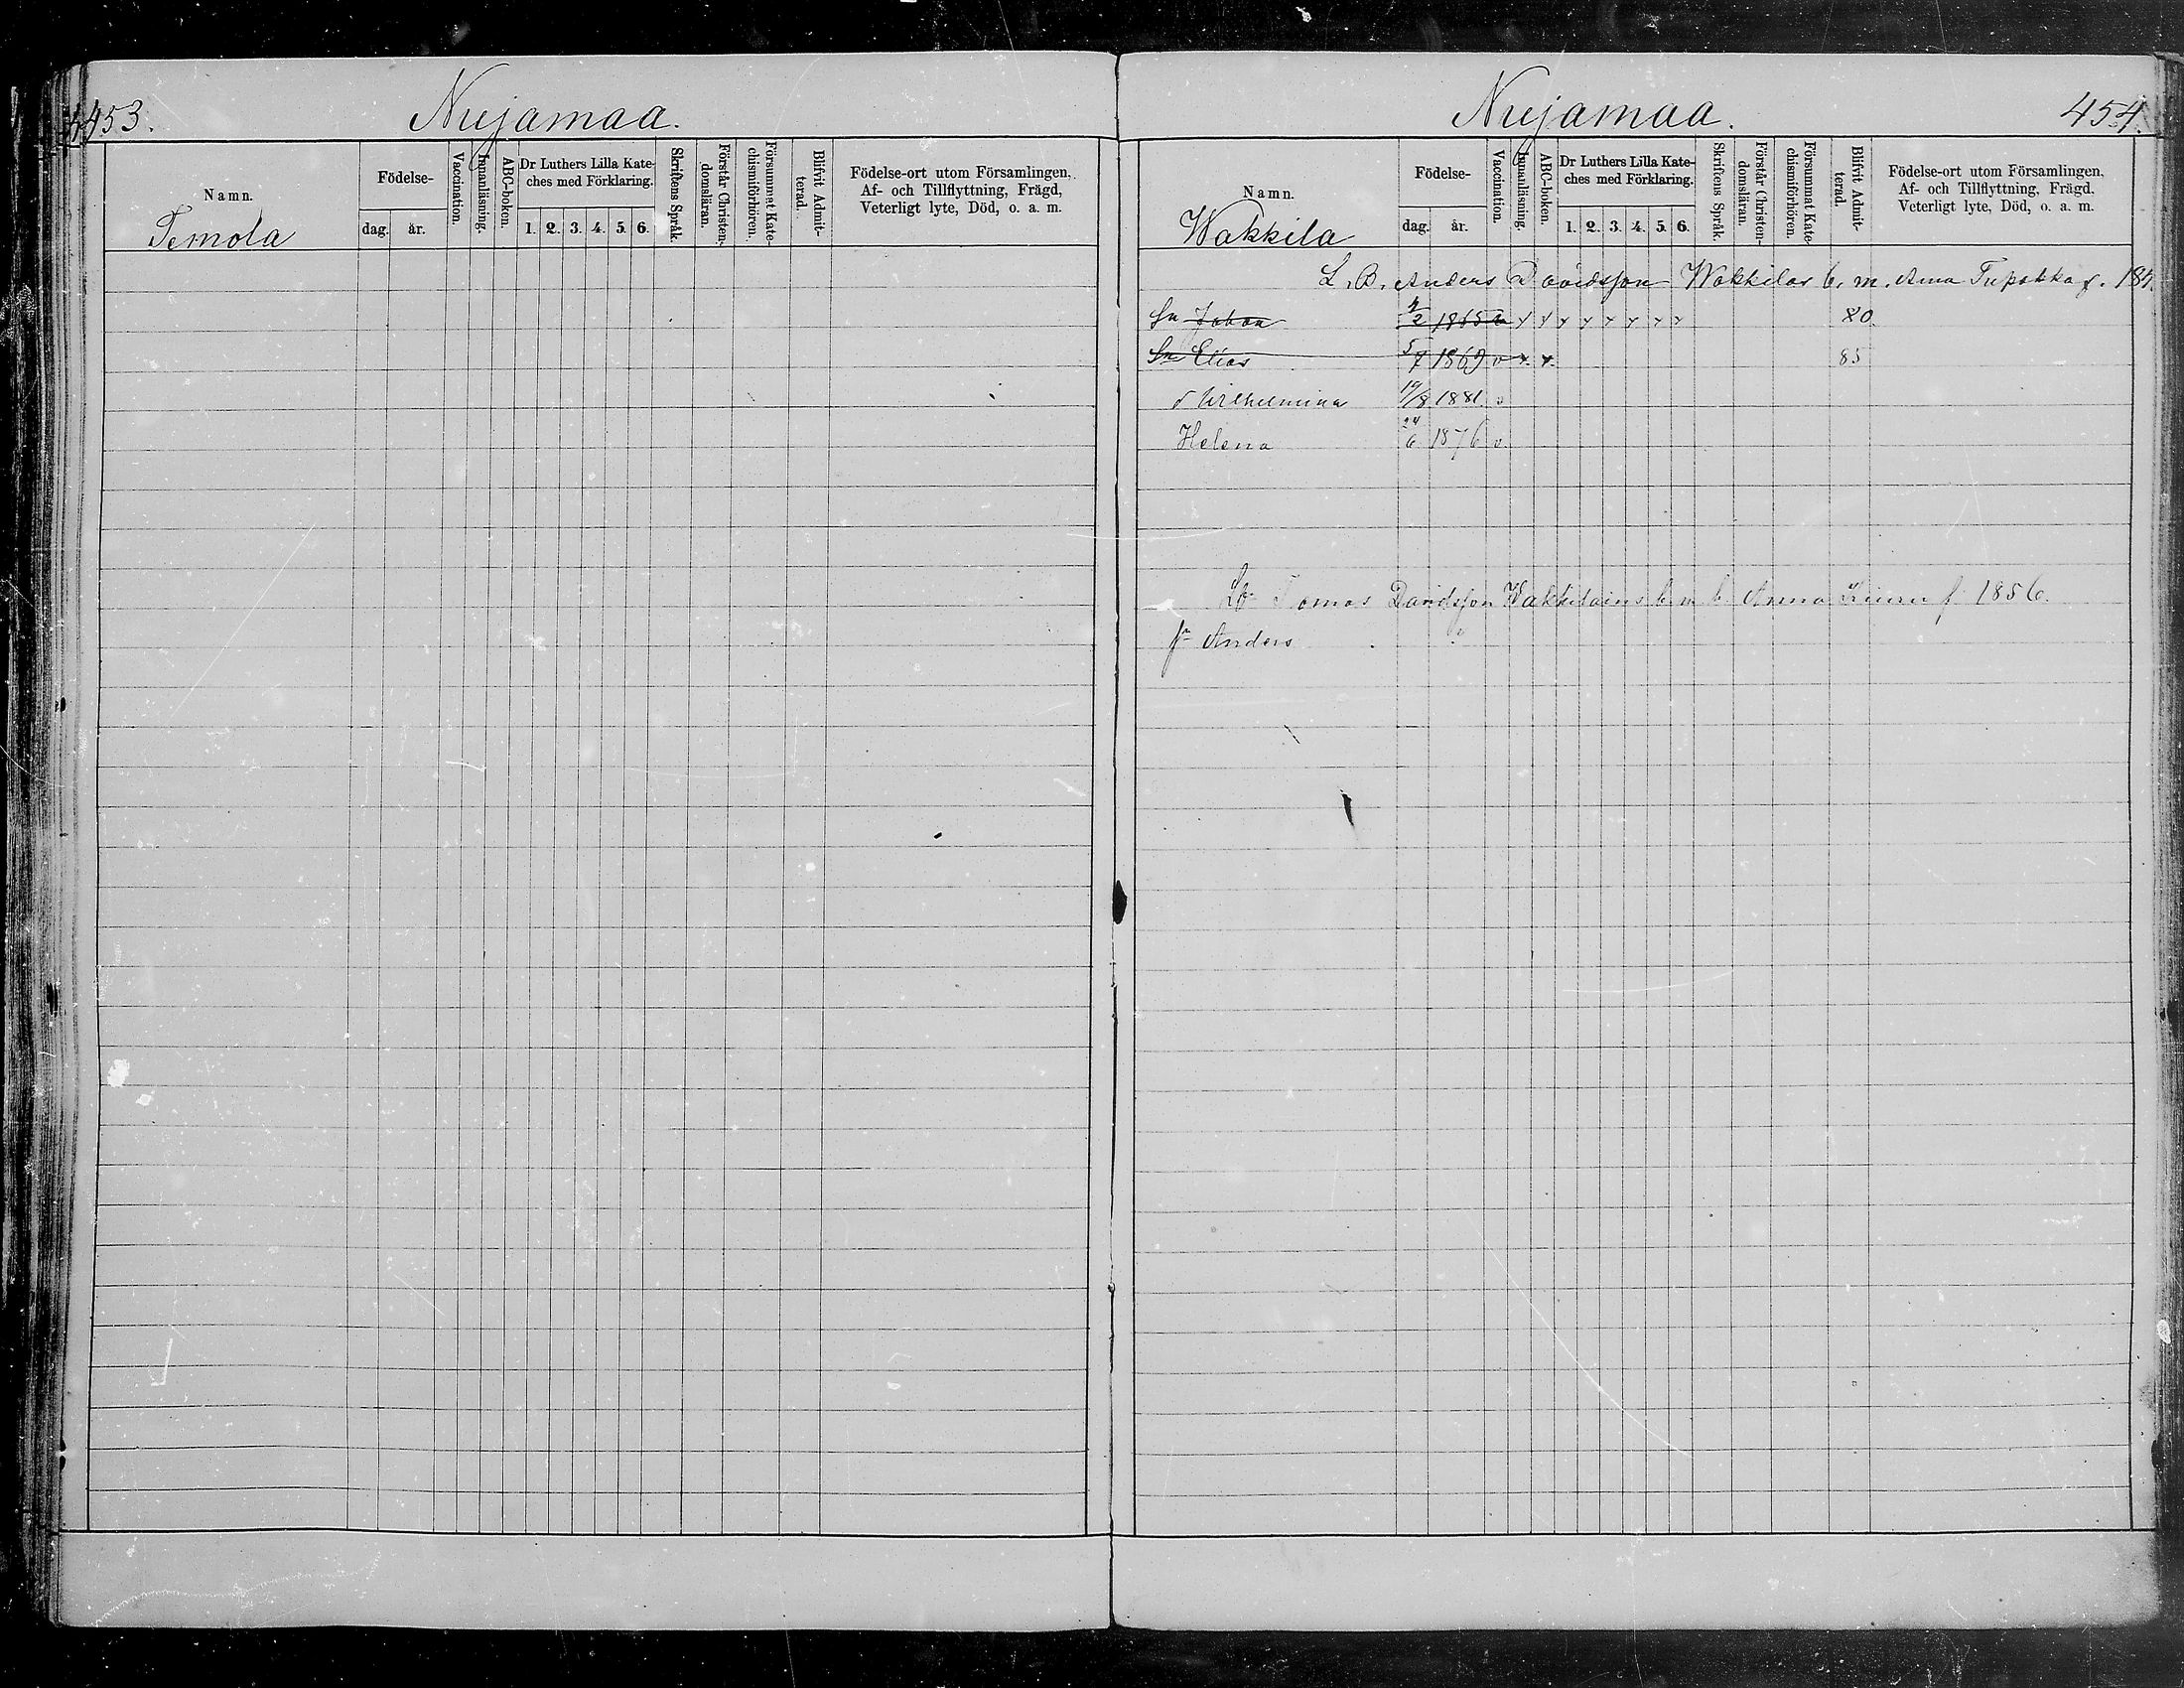 453.
Nuijamaa.
Namn.
Födelse-
dag. år.
Vaccination.
Innanläsning.
ABC-boken.
Dr Luthers Lilla Kate-
ches med Förklaring.
1. 2. 3. 4. 5. 6.
Skriftens Språk.
Förstår Christen-
domsläran.
Försummat Kate-
chismiförhören.
Blifvit Admit-
terad.
Födelse-ort utom Församlingen,
Af- och Tillflyttning, Frägd,
Veterligt lyte, Död, o. a. m.
Temola
Nuijamaa.
454.
Namn.
Födelse-
dag. år.
Vaccination.
Innanläsning.
ABC-boken.
Dr Luthers Lilla Kate-
ches med Förklaring.
1. 2. 3. 4. 5. 6.
Skriftens Språk.
Förstår Christen-
domsläran.
Försummat Kate-
chismiförhören.
Blifvit Admit-
terad.
Födelse-ort utom Församlingen,
Af- och Tillflyttning, Frägd,
Veterligt lyte, Död, o. a. m.
Wakkila
L. B. Anders Davidsson Wakkilas b. m. Anna f.
Sn Johan 2 1865 80.
Sn Elias 5/4 1869 v x x. 85
d Wilhelmina 19/8 1881. v
Helena 24/6 1876 v.
Lb Tomas Davidsson Wakkilains b m b Anna f 1856.
sn Anders